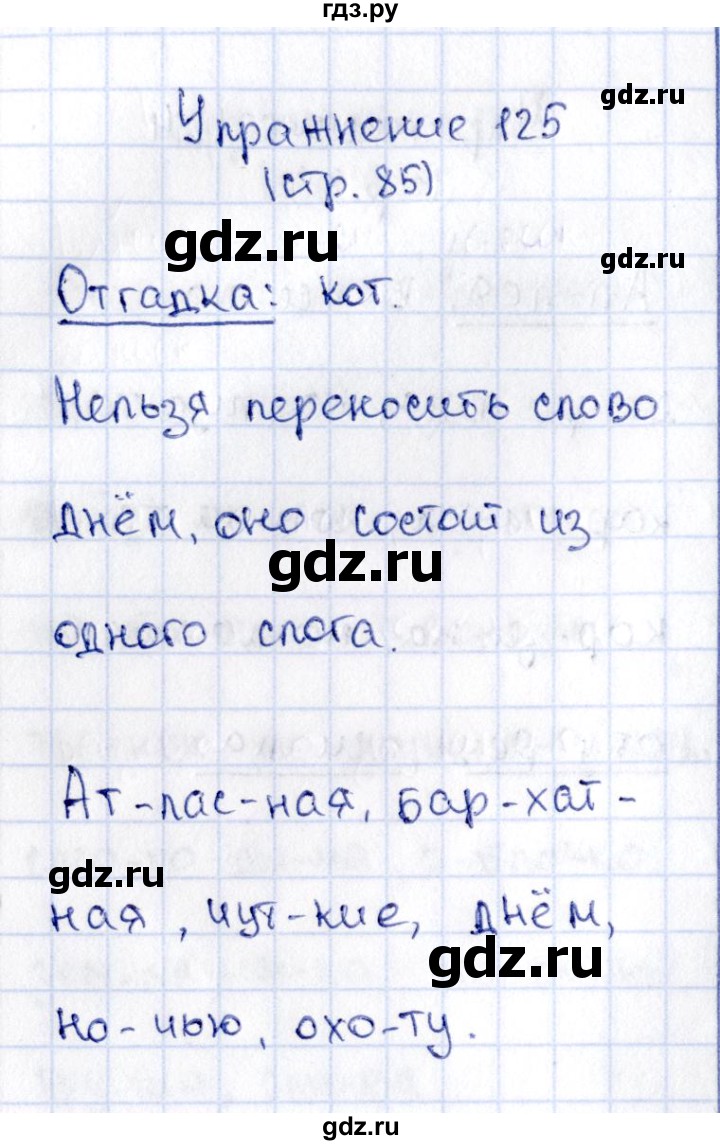 гдз.ру
gdz.ru
Упражнение 125
(стр. 85)
gdz.ru
gdz.ru
Отгадка: кот.
Нельзя переносить слово
днём, оно состоит из
gdz.ru
одного слога.
Ат-лас-ная, бар-хат-
gdz.ru
ная, чут-кие, днём,
gdz.ru
но-чью, охо-ту.
гдз.ру